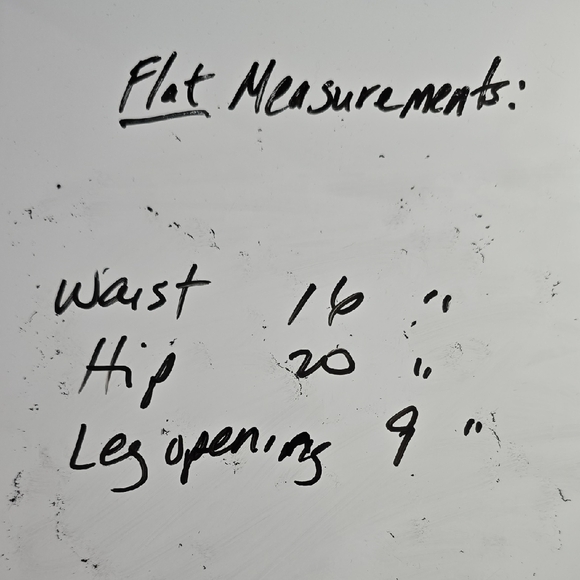 Flat Measurements:
Waist 16 "
Hip 20 "
Leg opening 9 "